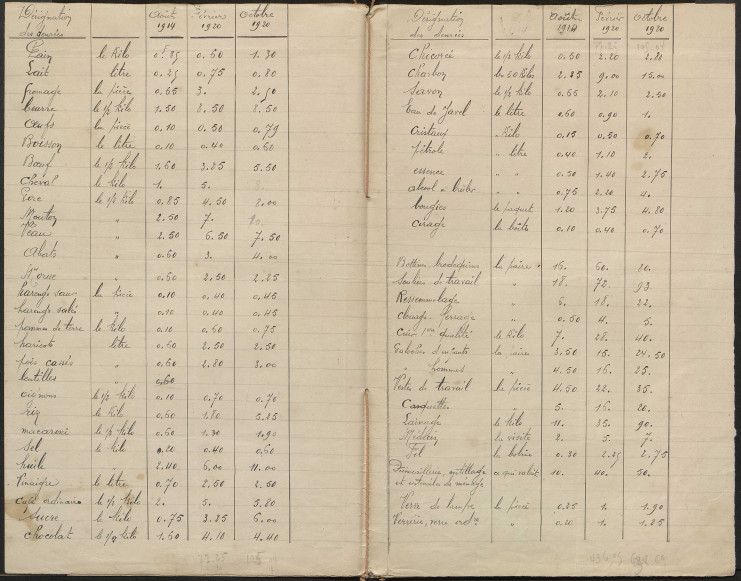 Désignation des denrées Août 1914 Février 1920 Octobre 1920
Pain le Kilo 0.85 0.60 1.30
Lait litre 0.25 0.75 0.80
fromage la pièce 0.65 3. 2.50
beurre le ½ Kilo 1.50 8.50 8.50
Oeufs la pièce 0.10 0.50 0.79
Boisson le litre 0.10 0.40 0.60
Bœuf le ½ Kilo 1.60 3.85 5.50
Cheval le Kilo 1. 5.
Porc le ½ Kilo 0.85 4.50 8.00
Mouton " 2.50 7.
Veau " 2.50 6.50 7.50
Abats " 0.60 3. 4.00
Morue " 0.60 2.50 2.25
harengs saur la pièce 0.10 0.40 0.45
harengs salés " 0.10 0.40 0.45
pommes de terre le Kilo 0.10 0.60 0.75
haricots litre 0.60 2.50 2.50
pois cassés " 0.60 2.80 3.00
lentilles " 0.60
oignons le ½ Kilo 0.10 0.70 0.70
riz le Kilo 0.60 1.80 5.25
macaroni le ½ Kilo 0.60 1.30 1.90
Sel le Kilo 0.20 0.40 0.60
huile 2.40 6.00 11.00
Vinaigre le litre 0.70 2.50 2.50
Café ordinaire le ½ Kilo 2. 5. 5.80
Sucre le Kilo 0.75 3.85 6.00
Chocolat le ½ Kilo 1.60 4.10 4.40
Désignation des denrées Août 1914 Février 1920 Octobre 1920
Chicorée le ½ Kilo 0.60 2.20 2.80
Charbon les 50 Kilos 2.85 9.00 15.00
Savon le ½ Kilo 0.65 2.10 2.50
Eau de Javel le litre 0.60 0.90 1.
Cristaux Kilo 0.15 0.50 0.70
pétrole litre 0.40 1.10 2.
essence " " 0.50 1.40 2.75
alcool à brûler " " 0.75 2.20 4.
bougies le paquet 1.20 3.75 4.80
cirage la boîte 0.10 0.40 0.70
Bottines brodequins la paire 15. 60.
Souliers de travail " 18. 72. 93
Ressemelage " 6. 18. 22.
clouage, ferrage " 0.50 4. 5.
Cuir 1ère qualité le Kilo 7. 28. 40.
Galoches d'enfants la paire 3.50 16. 24.50
" hommes " 4.50 16. 25.
Vestes de travail la pièce 4.50 22. 35.
Casquettes " 5. 16. 20.
Lainage le Kilo 11. 35. 90.
Médecin la visite 2. 5. 7.
Fil la bobine 0.30 2.25 2.75
Quincaillerie, outillage ce qui valait 10. 40. 50.
et ustensiles de ménage
Verre de lampe la pièce 0.25 1. 1.90
Verrerie, verre ordre " 0.20 1. 1.25